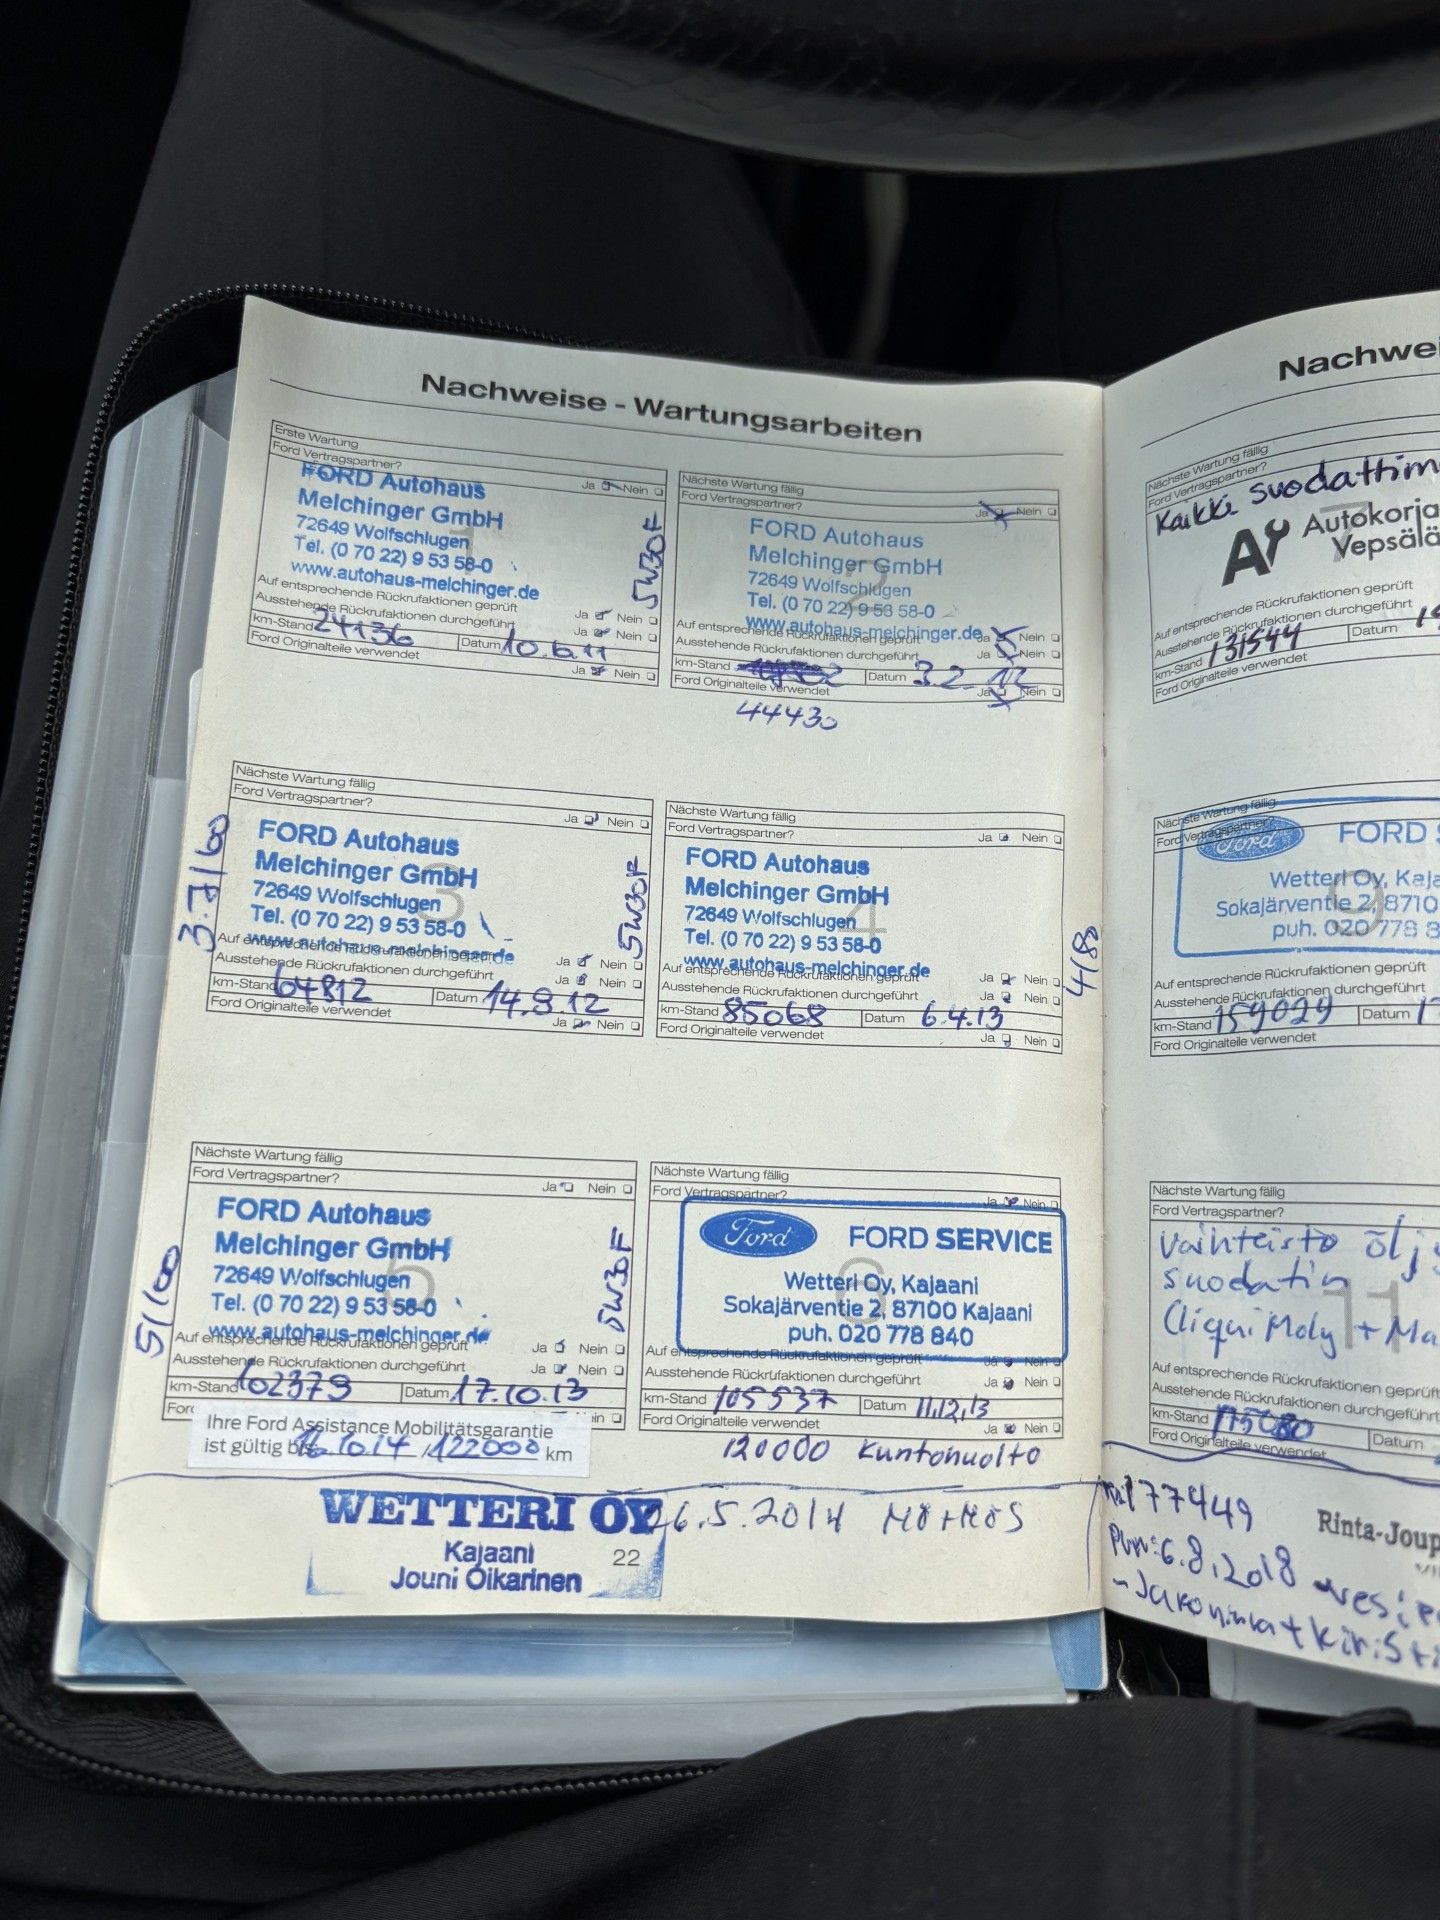 Nachweise - Wartungsarbeiten
Erste Wartung
Ford Vertragspartner?
Ja Nein
FORD Autohaus
Melchinger GmbH
72649 Wolfschlugen
Tel. (0 70 22) 9 53 58-0
www.autohaus-melchinger.de
5W30F
1
Auf entsprechende Rückrufaktionen geprüft
Ja Nein
Ausstehende Rückrufaktionen durchgeführt
Ja Nein
km-Stand 24136 Datum 10.6.11
Ford Originalteile verwendet
Ja Nein
Nächste Wartung fällig
Ford Vertragspartner?
Ja Nein
FORD Autohaus
Melchinger GmbH
72649 Wolfschlugen
Tel. (0 70 22) 9 53 58-0
www.autohaus-melchinger.de
2
Auf entsprechende Rückrufaktionen geprüft
Ja Nein
Ausstehende Rückrufaktionen durchgeführt
Ja Nein
km-Stand Datum 3.2.12
Ford Originalteile verwendet
Ja Nein
44430
Nächste Wartung fällig
Ford Vertragspartner?
Ja Nein
FORD Autohaus
Melchinger GmbH
72649 Wolfschlugen
Tel. (0 70 22) 9 53 58-0
www.autohaus-melchinger.de
5W30F
3
Auf entsprechende Rückrufaktionen geprüft
Ja Nein
Ausstehende Rückrufaktionen durchgeführt
Ja Nein
km-Stand 64812 Datum 14.9.12
Ford Originalteile verwendet
Ja Nein
Nächste Wartung fällig
Ford Vertragspartner?
Ja Nein
FORD Autohaus
Melchinger GmbH
72649 Wolfschlugen
Tel. (0 70 22) 9 53 58-0
www.autohaus-melchinger.de
4/80
4
Auf entsprechende Rückrufaktionen geprüft
Ja Nein
Ausstehende Rückrufaktionen durchgeführt
Ja Nein
km-Stand 85068 Datum 6.4.13
Ford Originalteile verwendet
Ja Nein
Nächste Wartung fällig
Ford Vertragspartner?
Ja Nein
FORD Autohaus
Melchinger GmbH
72649 Wolfschlugen
Tel. (0 70 22) 9 53 58-0
www.autohaus-melchinger.de
5W30F
5/100
5
Auf entsprechende Rückrufaktionen geprüft
Ja Nein
Ausstehende Rückrufaktionen durchgeführt
Ja Nein
km-Stand 102379 Datum 17.10.13
Ihre Ford Assistance Mobilitätsgarantie
ist gültig bis 16.10.14 / 122000 km
Nächste Wartung fällig
Ford Vertragspartner?
Ja Nein
Ford FORD SERVICE
Wetteri Oy, Kajaani
Sokajärventie 2, 87100 Kajaani
puh. 020 778 840
6
Auf entsprechende Rückrufaktionen geprüft
Ja Nein
Ausstehende Rückrufaktionen durchgeführt
Ja Nein
km-Stand 105537 Datum 11.12.13
Ford Originalteile verwendet
Ja Nein
120000 Kuntohuolto
WETTERI OY 26.5.2014
Kajaani
Jouni Oikarinen
22
Nächste Wartung fällig
Ford Vertragspartner?
Kaikki
Autokorja
Vepsälä
Auf entsprechende Rückrufaktionen geprüft
Ausstehende Rückrufaktionen durchgeführt
km-Stand 131544 Datum
Ford Originalteile verwendet
Nächste Wartung fällig
Ford Vertragspartner?
Ford FORD
Wetteri Oy, Kaja
Sokajärventie 2, 8710
puh. 020 778 8
9
Auf entsprechende Rückrufaktionen geprüft
Ausstehende Rückrufaktionen durchgeführt
km-Stand 159029 Datum
Ford Originalteile verwendet
Nächste Wartung fällig
Ford Vertragspartner?
vaihteisto öljy
suodatin
(Liqui Moly + Ma
11
Auf entsprechende Rückrufaktionen geprüft
Ausstehende Rückrufaktionen durchgeführt
km-Stand 175080 Datum
Ford Originalteile verwendet
177449
Rinta-Joup
Pvm: 6.8.2018